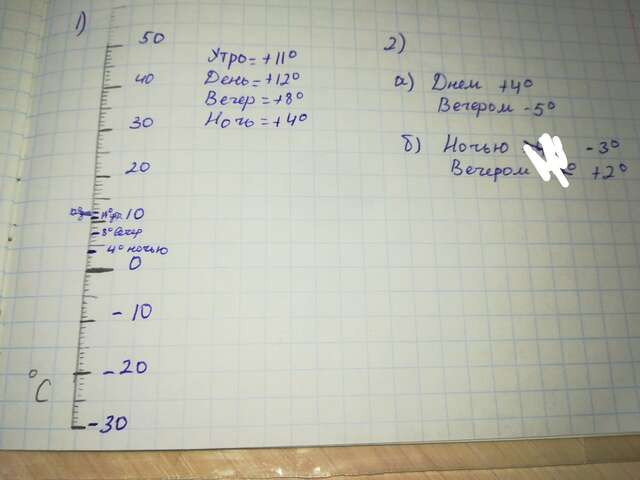 1)
50
40
30
20
10
11° ут.
8° вечер
4° ночью
0
-10
-20
-30
°C
Утро = +11°
День = +12°
Вечер = +8°
Ночь = +4°
2)
а) Днем +4°
Вечером -5°
б) Ночью -3°
Вечером +2°